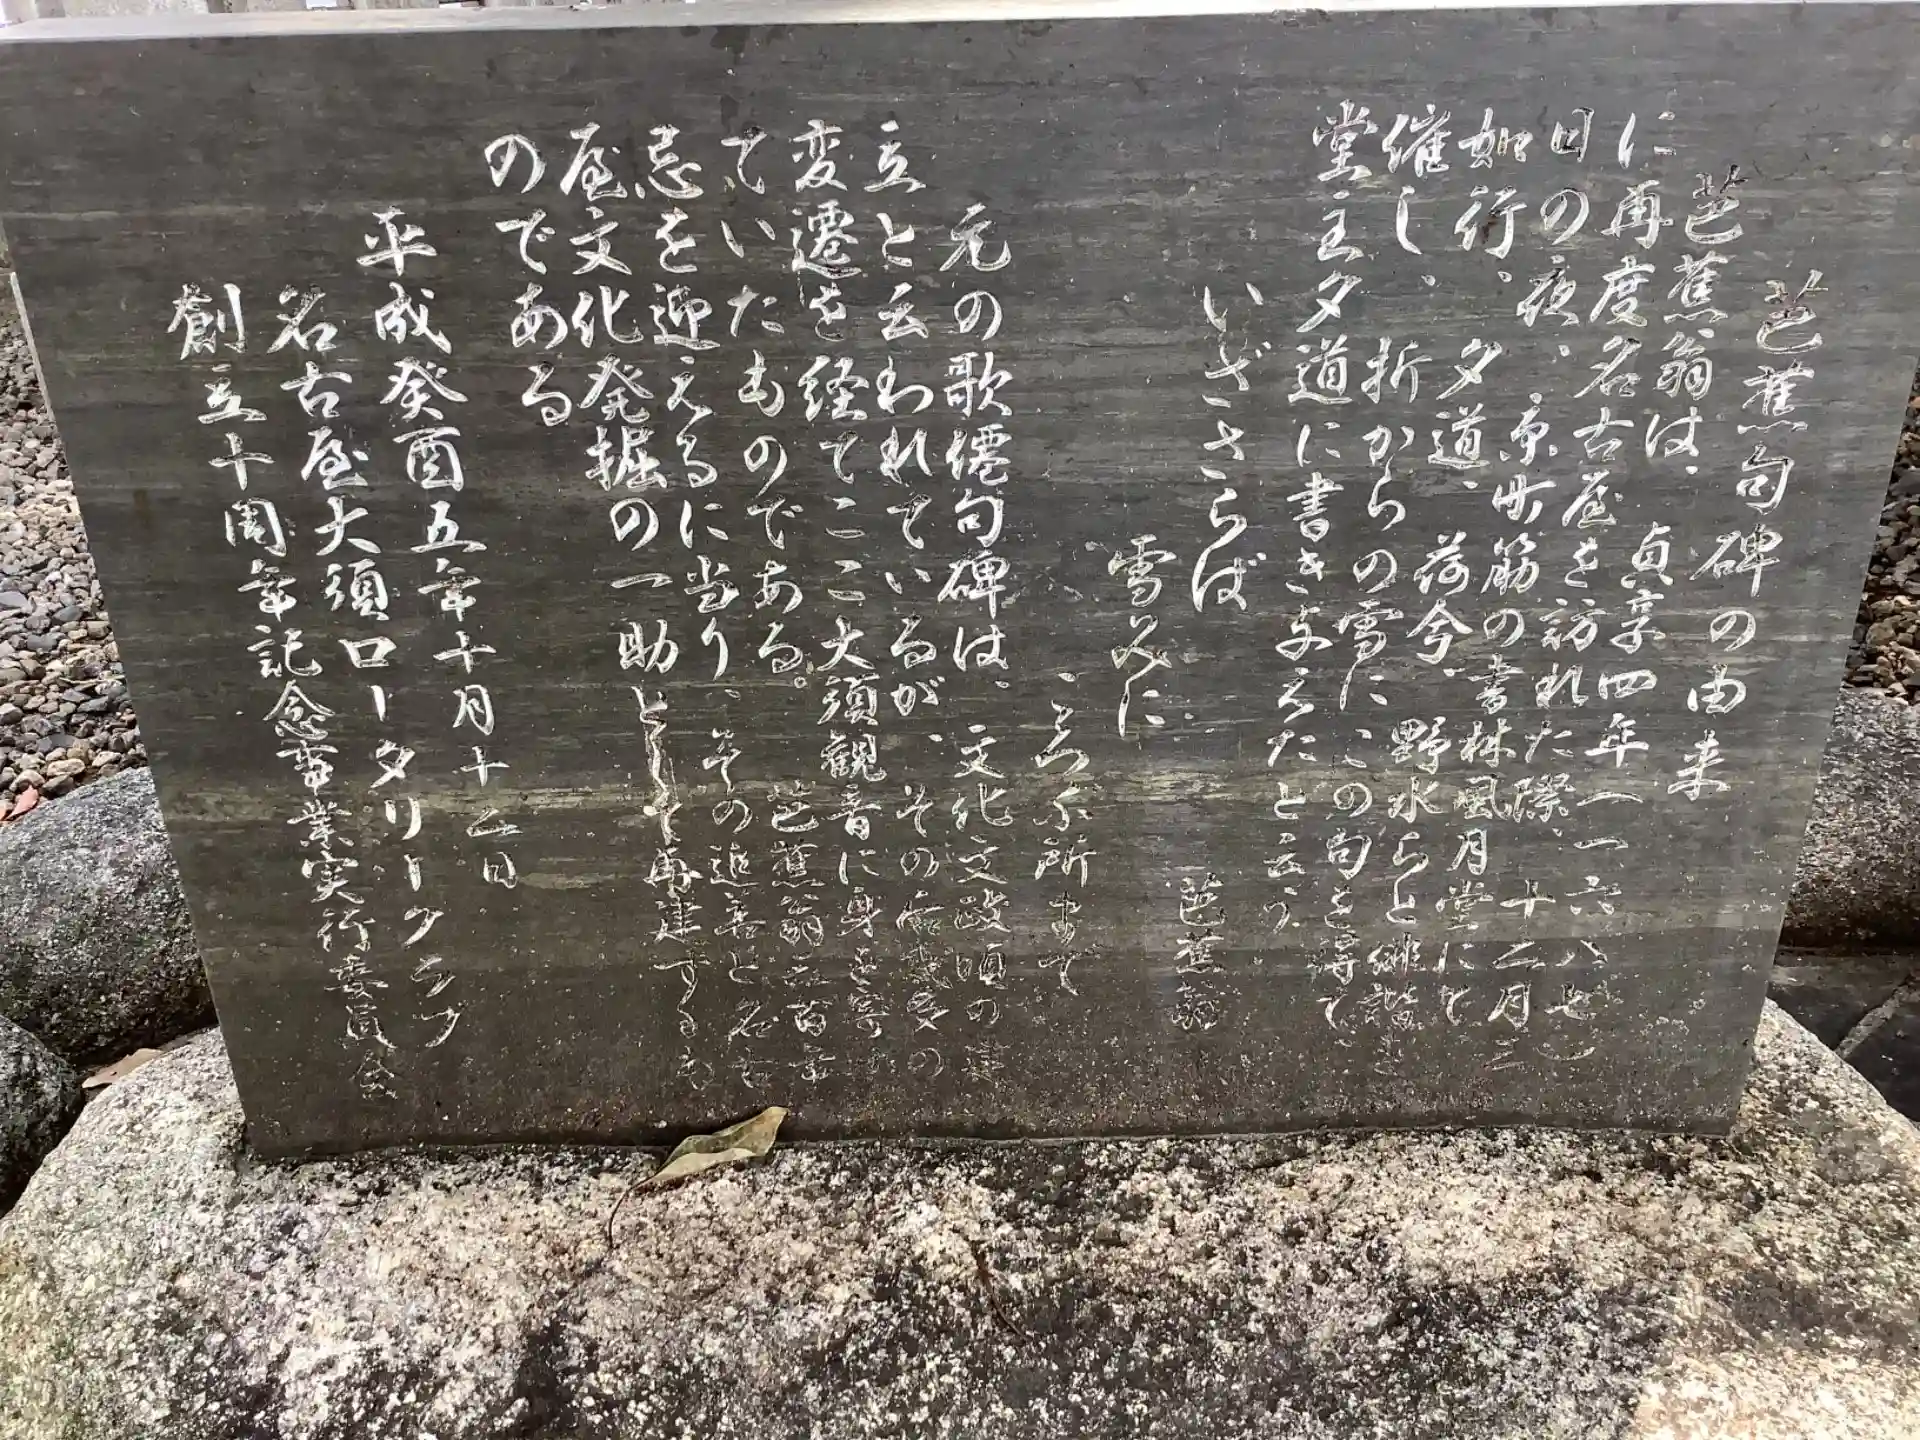 芭蕉句碑の由来
芭蕉翁は、貞享四年(一六八七)
に再度名古屋を訪れた際、十二月三
日の夜、京町筋の書林風月堂にて
如行、夕道、荷兮、野水らと俳諧を
催し、折からの雪にこの句を得て
堂主夕道に書き与えたと云う
いざさらば 芭蕉翁
雪みに
ころぶ所まで
元の歌僊句碑は、文化文政頃の建
立と云われているが、その后幾多の
変遷を経てここ大須観音に身を寄せ
ていたものである。芭蕉翁三百年
忌を迎えるに当り、その追善と名古
屋文化発掘の一助として再建するも
のである
平成癸酉五年十月十二日
名古屋大須ロータリークラブ
創立十周年記念事業実行委員会